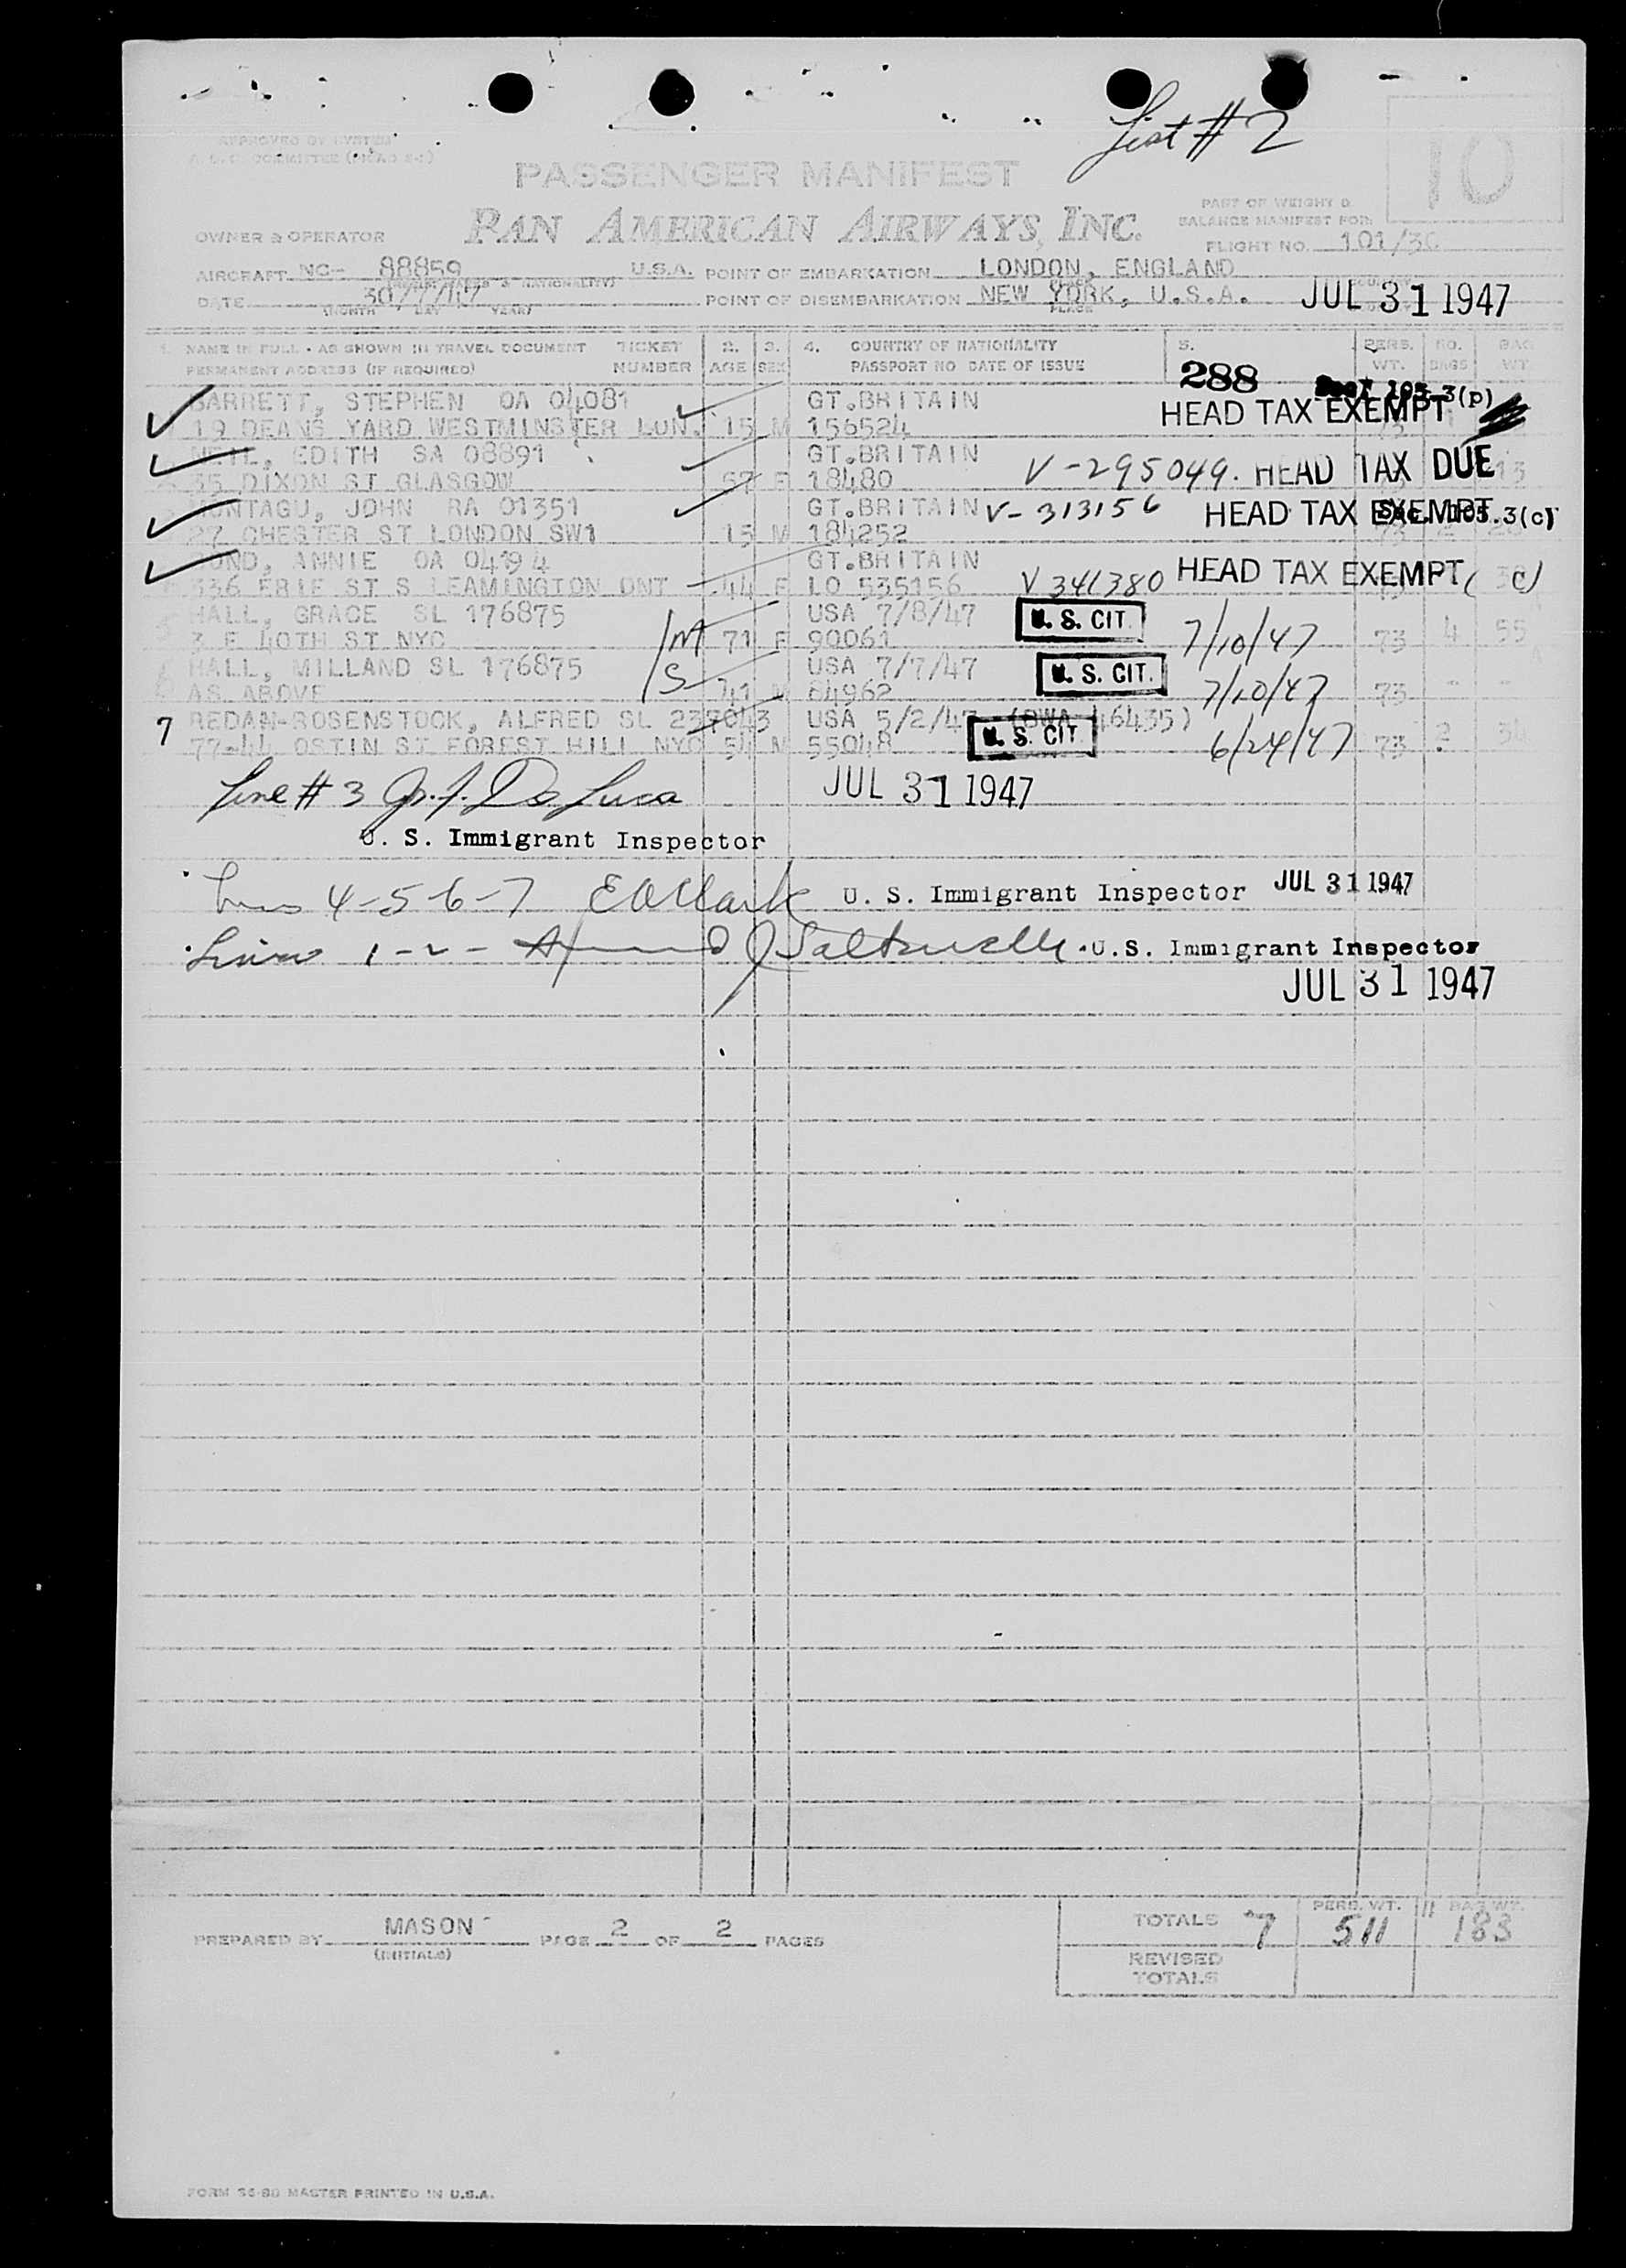 List # 2
APPROVED BY SYSTEM
COMMITTEE
10
PASSENGER MANIFEST
PAN AMERICAN AIRWAYS, INC.
PART OF WEIGHT &
BALANCE MANIFEST FOR
OWNER & OPERATOR
FLIGHT NO. 101/30
AIRCRAFT NC- 88859 U.S.A. POINT OF EMBARKATION LONDON, ENGLAND
DATE 30/7/47 POINT OF DISEMBARKATION NEW YORK, U.S.A. JUL 31 1947
(MONTH DAY YEAR) PLACE
1. NAME IN FULL - AS SHOWN IN TRAVEL DOCUMENT TICKET 2. 3. 4. COUNTRY OF NATIONALITY 5. PERS. NO. BAG
PERMANENT ADDRESS (IF REQUIRED) NUMBER AGE SEX PASSPORT NO DATE OF ISSUE WT. BAGS WT
288 3(p)
BARRETT, STEPHEN OA 04081 GT.BRITAIN HEAD TAX EXEMPT
19 DEANS YARD WESTMINSTER LON. 15 M 156524
NEIL, EDITH SA 08891 GT.BRITAIN V-295049. HEAD TAX DUE
35 DIXON ST GLASGOW F 18480 13
MONTAGU, JOHN RA 01351 GT.BRITAIN V-313156 HEAD TAX EXEMPT 3(c)
27 CHESTER ST LONDON SW1 15 M 184252 73 2
POND, ANNIE OA 04194 GT.BRITAIN HEAD TAX EXEMPT
336 ERIE ST S LEAMINGTON ONT 44 F LO 535156 V 341380 ( c)
HALL, GRACE SL 176875 USA 7/8/47 U. S. CIT.
3 E 40TH ST NYC M 71 F 90061 7/10/47 73 4 55
HALL, MILLAND SL 176875 USA 7/7/47 U. S. CIT.
AS ABOVE S 41 M 84962 7/10/47 73 " "
7 REDAN-ROSENSTOCK, ALFRED SL 237043 USA 5/2/47 (BWA 46435)
77-44 OSTIN ST FOREST HILL NYC 54 M 55048 U. S. CIT. 6/24/47 73 2 34
Line # 3 De Luca JUL 31 1947
U. S. Immigrant Inspector
Lines 4-5-6-7 E O Clark U. S. Immigrant Inspector JUL 31 1947
Lines 1-2- U.S. Immigrant Inspector
JUL 31 1947
PREPARED BY MASON PAGE 2 OF 2 PAGES
(INITIALS)
TOTALS 7 PERS. WT. 511 11 BAG WT. 183
REVISED
TOTALS
FORM 36-80 MASTER PRINTED IN U.S.A.